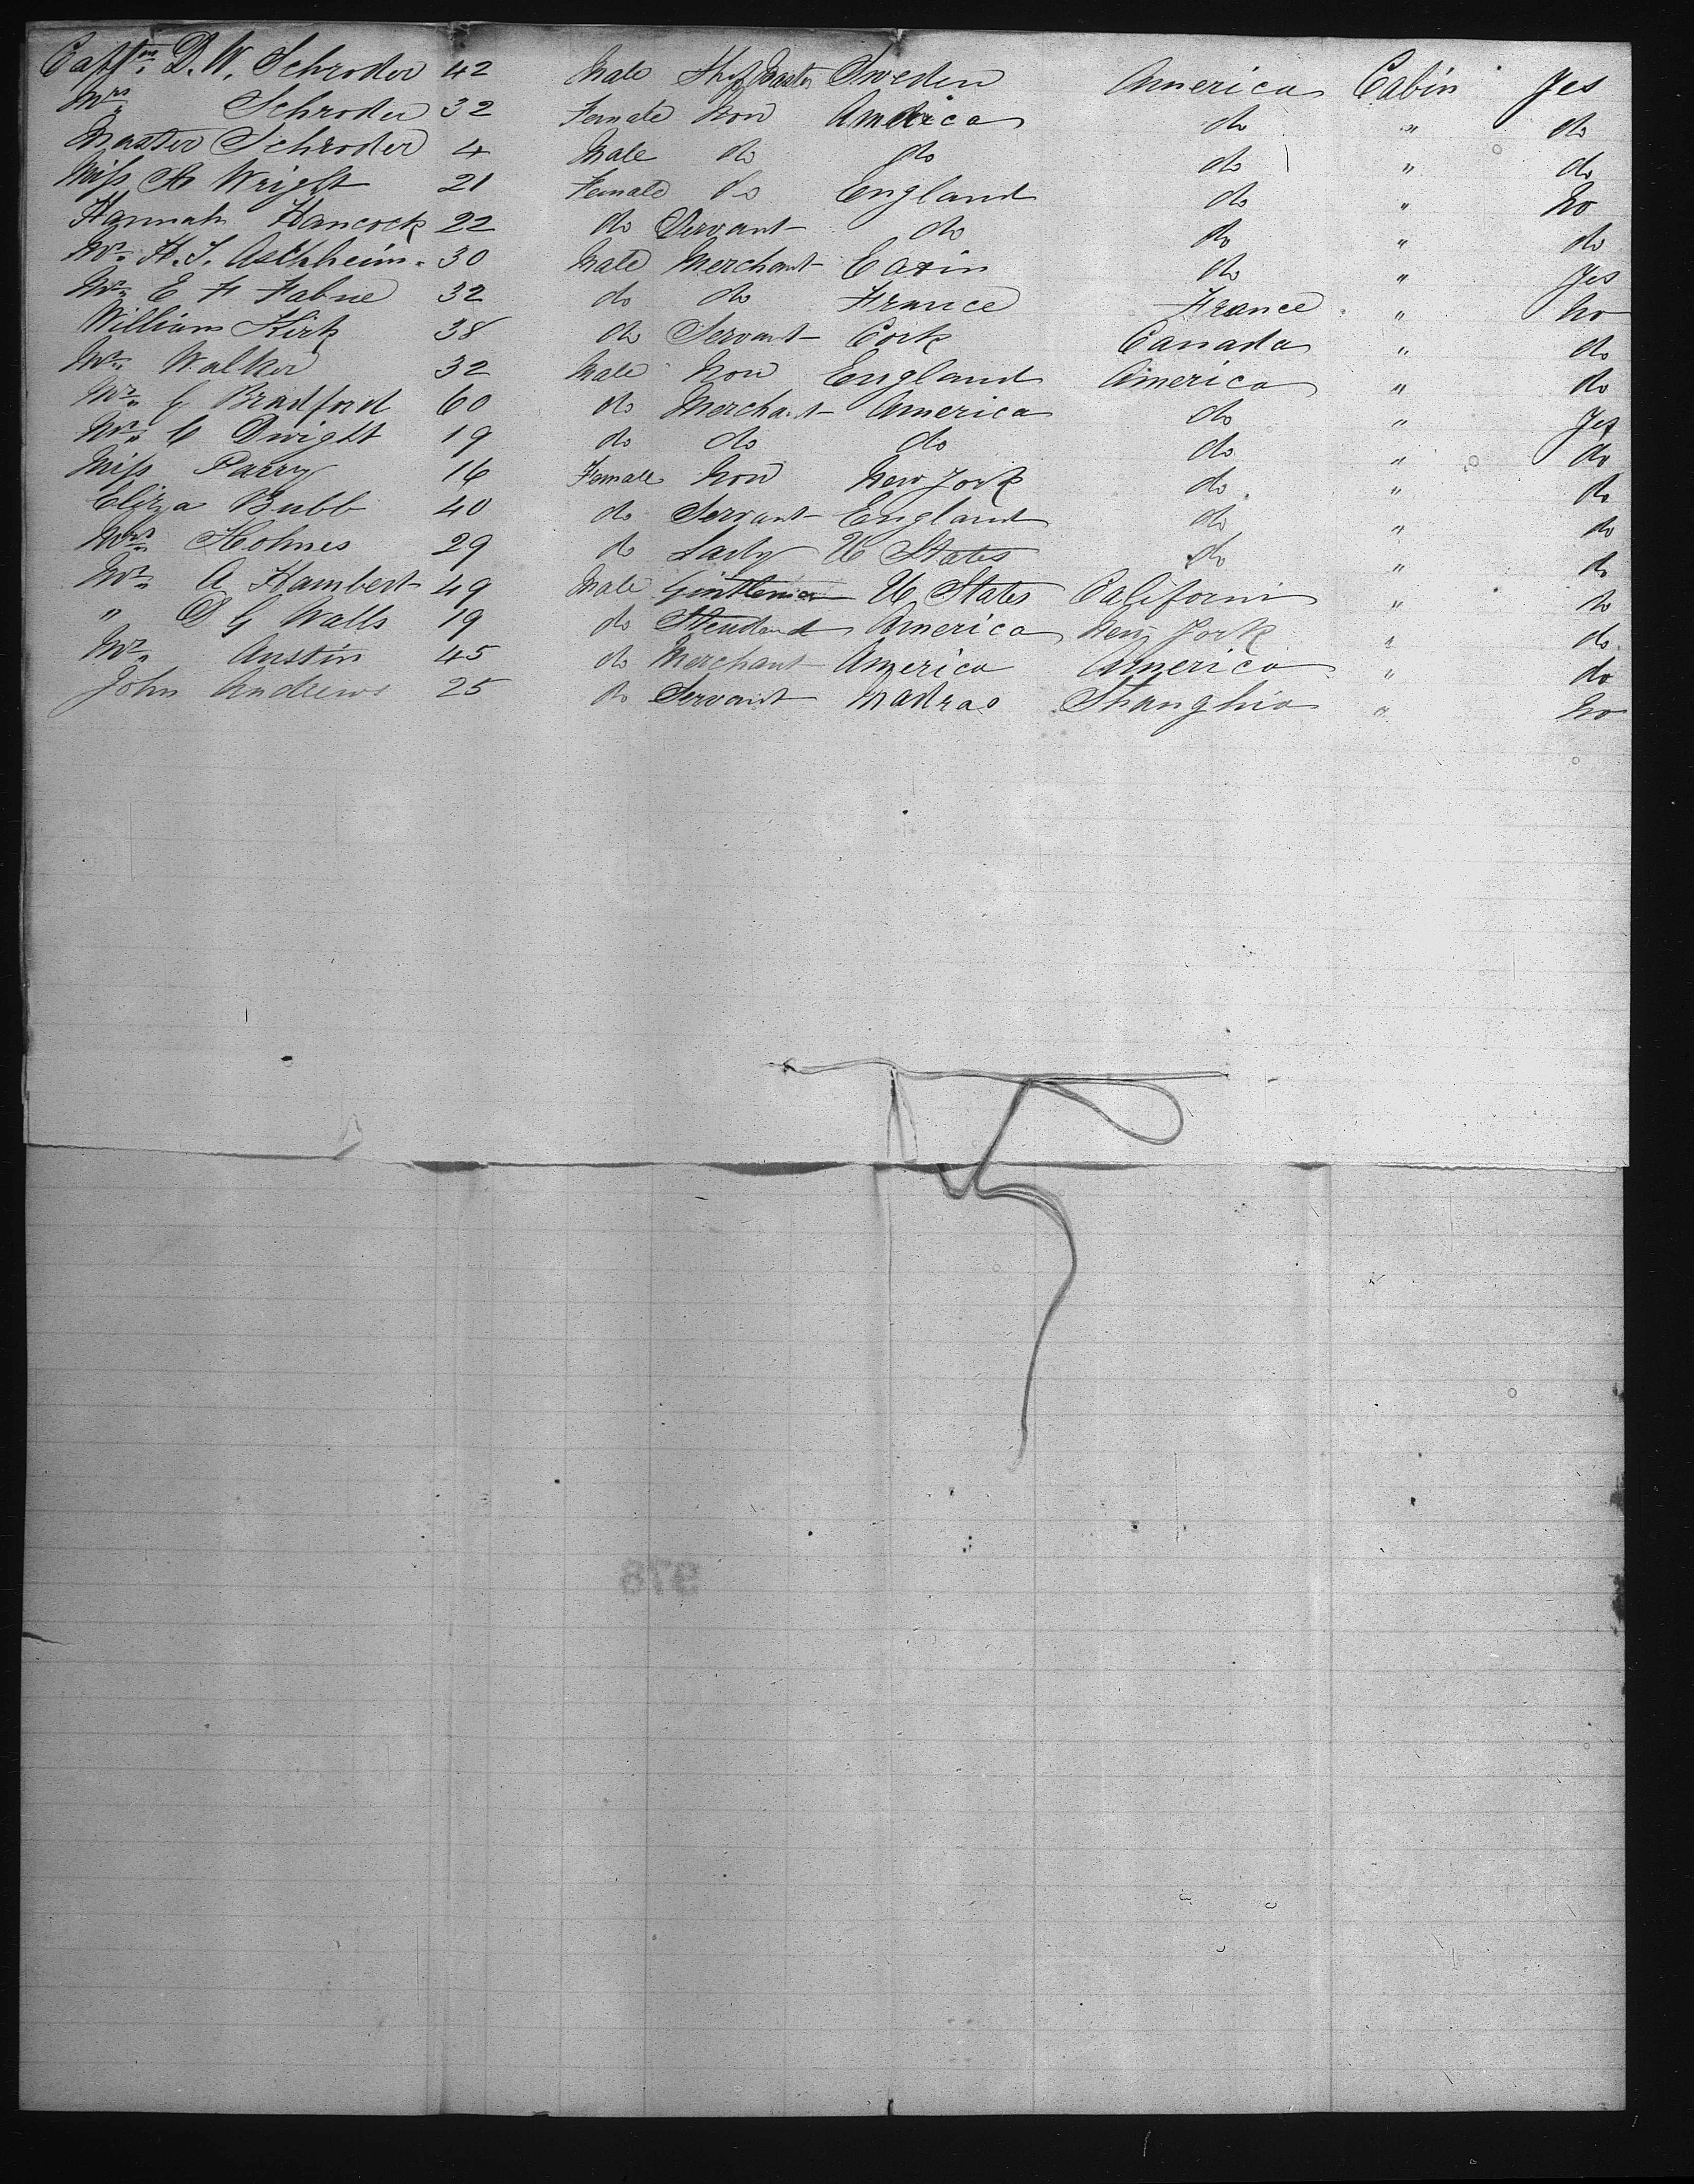 Captn. D. W. Schroder 42 Male Ship Master Sweden America Cabin Yes
Mrs. Schroder 32 Female Non America do " do
Master Schroder 4 Male do do do " do
Miss A Wright 21 Female do England do " No
Hannah Hancock 22 do Servant do do " do
Mr. H. S. Aschheim. 30 Male Merchant do " Yes
Mr. E F Fabne 32 do do France France " No
William Kirk 38 do Servant Cork Canada " do
Mr. Walker 32 Male Non England America " do
Mr. G Bradford 60 do Merchant America do " Yes
Mr. C Dwight 19 do do do do " do
Miss Parry 16 Female Non New York do " do
Eliza Bubb 40 do Servant England do " do
Mrs. Holmes 29 do Lady U States do " do
Mr. A Hambert 49 Male Gentleman U States California " do
" D G Walls 19 do Steudend America New York " do
Mr. Austin 45 do Merchant America America " do
John Andrews 25 do Servant Madras Shanghia " No
976